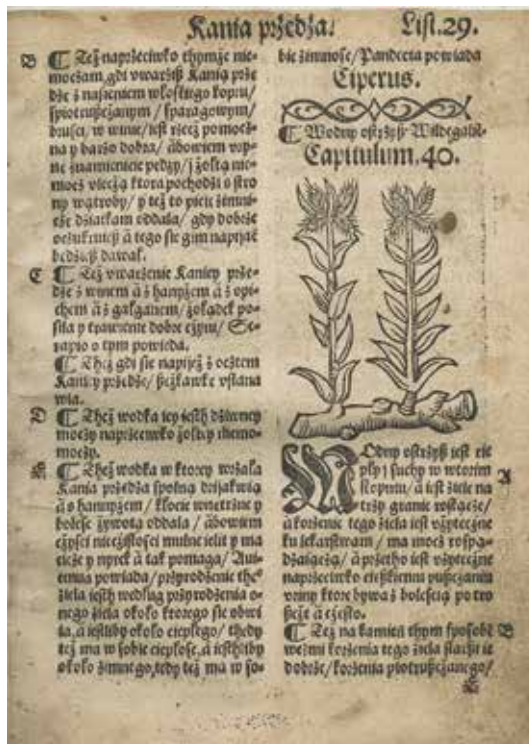 Kania przedza. List. 29.
B ¶ Też naprzeciwko thymże nie-
moczam, gdi vwarziß Kanią prże
dże z nasieniem włoskiego kopru/
ſpiotrużczanym / ſparagowym/
w winie/ ieſt rzecż pomocż-
na y barzo dobra/ ābowiem vry-
nę znamienicie pędzy/ j żołtą nie-
moc ktora pochodzi s ſtro
ny wątroby/ y też to picie zimni-
cże dziatkam oddala/ gdy dobrże
ā tego ſie gim napijać
będzieß dawał.
C ¶ Też vwarzenie Kaniey prże-
dże s winem ā s hanyżem ā s opi-
chem ā s gałganem/ żołądek po-
ſila y trawienie dobre cżyni/ Se-
rapio o tym powieda.
¶ Theż gdi ſie napijeß s octem
Kaniey przedże/ vſtana
wia.
D ¶ Theż wodka iey ieſth dziwney
moczy naprzeciwko żołtey niemo-
moczy.
E ¶ Theż wodka w ktorey wrzała
Kania przedza ſpolną drijakwią
ā s hannyżem/ kłocie wnętrzne y
boleſc żywota oddala/ ābowiem
cżyſci niecżiſtoſci mulne ielit y ma
cicże y nyrek ā tak pomaga/ Aui-
cenna powiada/ przyrodzenie theº
ziela ieſth według przyrodzenia o-
nego ziela około ktorego ſie obwi
ia, ā ieſtliby około ciepłego/ thedy
też ma w ſobie ciepłoſc, ā ieſthliby
około zimnego, tedy też ma w ſo-
bie zimnoſc/ Pandecta powiada
Ciperus.
¶ Wodny oſtrzyß
Capitulum. 40.
WOdny oſtrzyß ieſt cie
pły j ſuchy w wtorim A
ſtopniu/ ā ieſt ziele na
trzy granie roſtące/
ā korzenie tego ziela ieſt vżytecżne
ku lekarſtwam/ ma moc roſpą-
dzaiącą/ ā przetho ieſt vżytecżne
naprzeciwko cieſzkiemu pußcżaniu
vriny ktore bywa z boleſcią po tro
ßcże ā cżęſto.
¶ Też na kamień thym ſpoſobē B
weźmi korzenia tego ziela ie
dobrże/ korzenia piotrużcżanego/